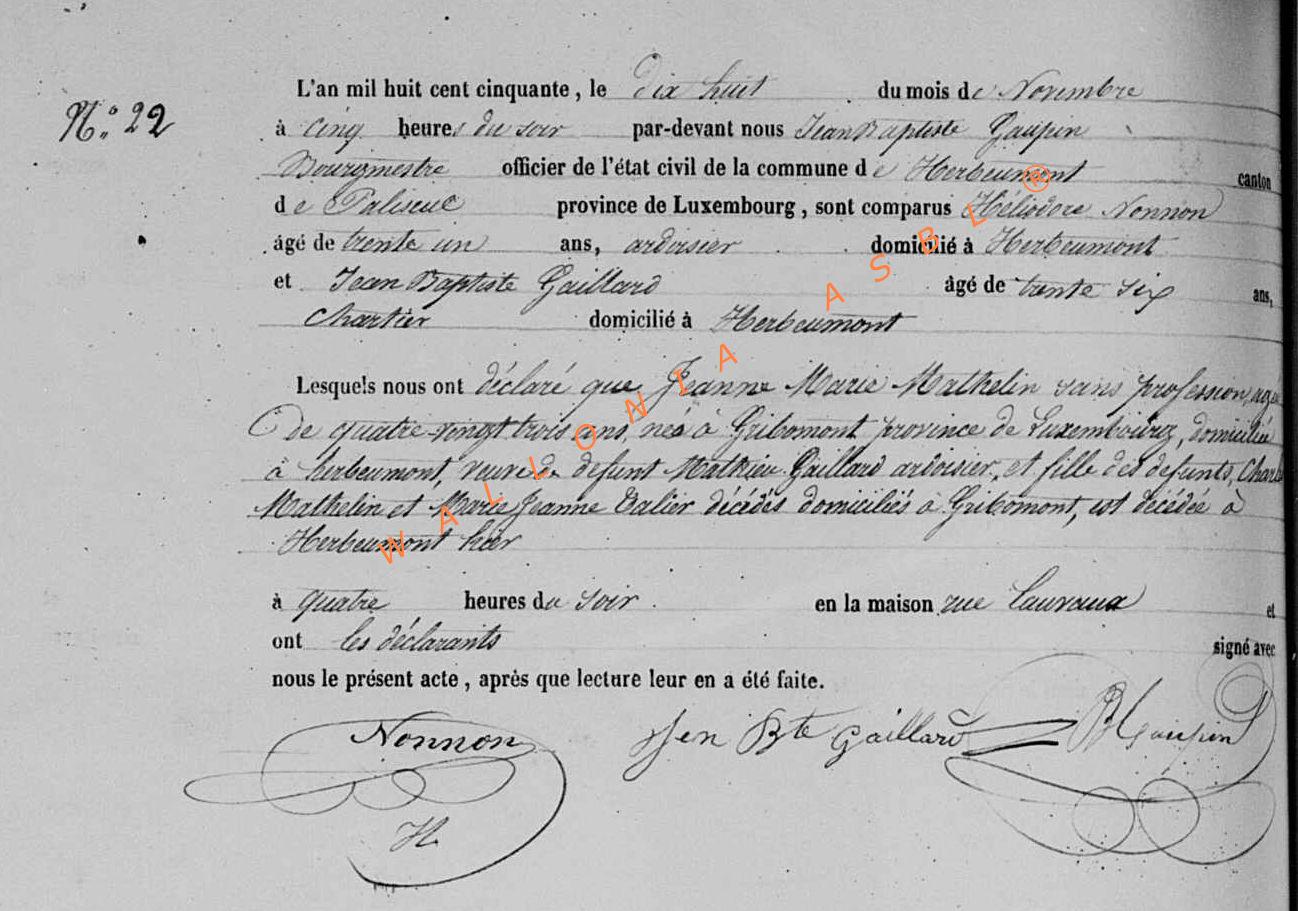 L'an mil huit cent cinquante, le dix huit du mois de Novembre
N.° 22
à cinq heures du soir par-devant nous Jean Baptiste Gaupin
Bourgmestre officier de l'état civil de la commune de Herbeumont canton
de Paliseul province de Luxembourg, sont comparus Héliodore Nonnon
âgé de trente un ans, ardoisier domicilié à Herbeumont
et Jean Baptiste Gaillard âgé de trente six ans,
Chartier domicilié à Herbeumont
Lesquels nous ont déclaré que Jeanne Marie Mathelin sans profession, agée
de quatre vingt trois ans, née à Gribomont province de Luxembourg, domiciliée
à herbeumont, veuve de defunt Mathieu Gaillard ardoisier, et fille des defunts, Charles
Mathelin et Marie Jeanne Valier décédés domiciliés à Gribomont, est décédée à
Herbeumont hier
à quatre heures du soir en la maison rue Lauvaux et
ont les déclarants signé avec
nous le présent acte, après que lecture leur en a été faite.
Nonnon Jen Bte Gaillard JB Gaupin
H.
WALLONIA ASBL ®